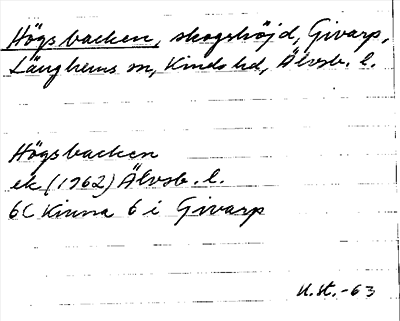 Högsbacken, skogshöjd, Givarp,
Länghems sn, Kinds hd, Älvsb. l.
Högsbacken
ek (1962) Älvsb. l.
6C Kinna 6 i Givarp
U.St.-63